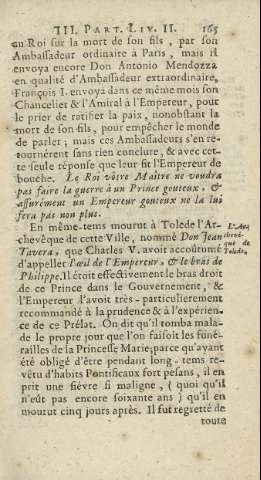 III. PART. LIV. II. 165
au Roi sur la mort de son fils, par son
Ambassadeur ordinaire à Paris, mais il
envoya encore Don Antonio Mendozza
en qualité d'Ambassadeur extraordinaire,
François I. envoya dans ce même mois son
Chancelier & l'Amiral à l'Empereur, pour
le prier de ratifier la paix, nonobstant la
mort de son fils, pour empêcher le monde
de parler; mais ces Ambassadeurs s'en re-
tournérent sans rien conclure, & avec cet-
te seule réponse que leur fit l'Empereur de
bouche. Le Roi vôtre Maître ne voudra
pas faire la guerre à un Prince gouteux, &
assurément un Empereur gouteux ne la lui
fera pas non plus.
En même-tems mourut à Tolede l'Ar-
chevêque de cette Ville, nommé Don Jean
Tavera, que Charles V. avoit accoûtumé
d'appeller l'œil de l'Empereur, & le bras de
Philippe. Il étoit effectivement le bras droit
de ce Prince dans le Gouvernement, &
l'Empereur l'avoit très-particulierement
recommandé à la prudence & à l'expérien-
ce de ce Prélat. On dit qu'il tomba mala-
de le propre jour que l'on faisoit les funé-
railles de la Princesse Marie; parce qu'ayant
été obligé d'être pendant long-tems re-
vêtu d'habits Pontificaux fort pesans, il en
prit une fiévre si maligne, (quoi qu'il
n'eût pas encore soixante ans) qu'il en
mourut cinq jours après. Il fut regretté de
toute
L'Ar-
chevê-
que de
Tolede.